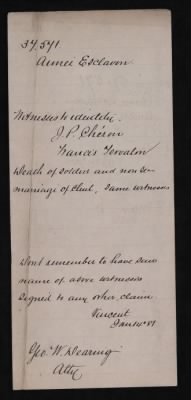 37,571
Aimeé Esclavon
Witnesses to identity.
J. P. Chéron
Francis Tervalon
Death of soldier and non re-
marriage of clmt, same witnesses
Dont remember to have seen
name of above witnesses
signed to any other claim.
Vincent
Jan 14 '81
Geo. W. Dearing
Atty